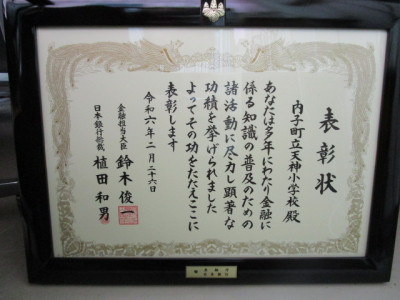 表彰状
内子町立天神小学校 殿
あなたは多年にわたり金融に
係る知識の普及のための
諸活動に尽力し顕著な
功績を挙げられました
よってその功をたたえここに
表彰します
令和六年二月二十六日
金融担当大臣 鈴木俊一
日本銀行総裁 植田和男